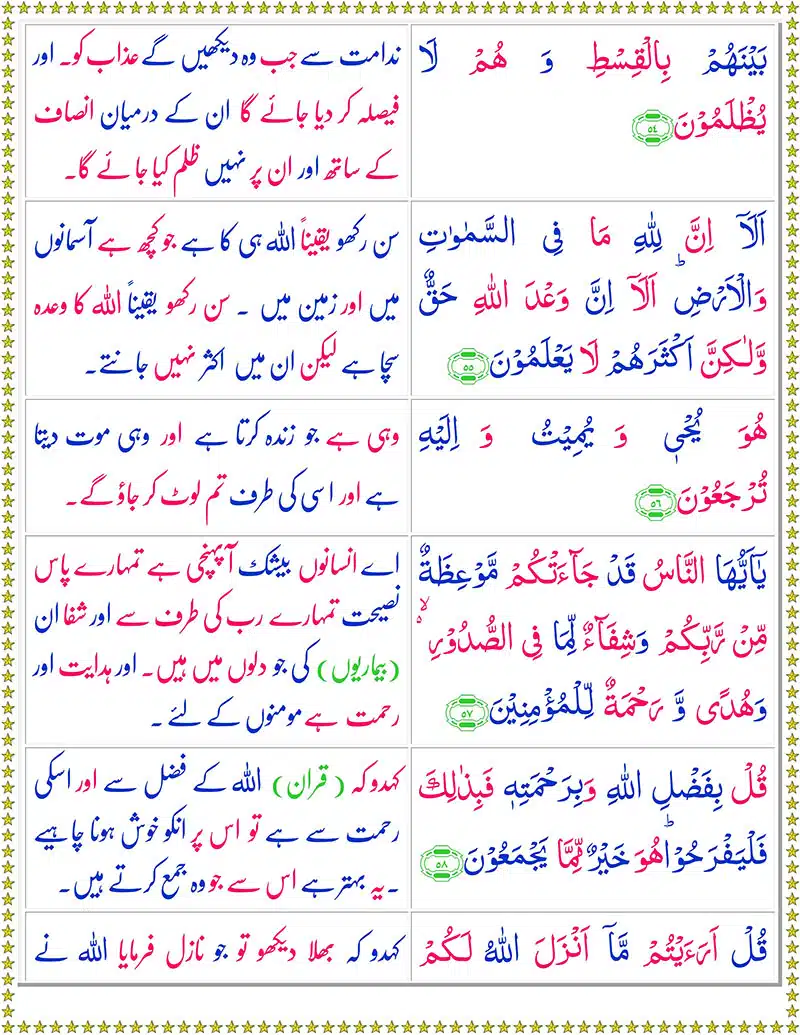 بَيْنَهُمْ بِالْقِسْطِ وَ هُمْ لَا
يُظْلَمُوْنَ ﴿٥٤﴾
ندامت سے جب وہ دیکھیں گے عذاب کو۔ اور
فیصلہ کر دیا جائے گا ان کے درمیان انصاف
کے ساتھ اور ان پر نہیں ظلم کیا جائے گا۔
اَلَآ اِنَّ لِلّٰهِ مَا فِى السَّمٰوٰتِ
وَالْاَرْضِ ؕ اَلَآ اِنَّ وَعْدَ اللّٰهِ حَقٌّ
وَّلٰـكِنَّ اَكْثَرَهُمْ لَا يَعْلَمُوْنَ ﴿٥٥﴾
سن رکھو یقیناً اللہ ہی کا ہے جو کچھ ہے آسمانوں
میں اور زمین میں ۔ سن رکھو یقیناً اللہ کا وعدہ
سچا ہے لیکن ان میں اکثر نہیں جانتے۔
هُوَ يُحْىٖ وَ يُمِيْتُ وَ اِلَيْهِ
تُرْجَعُوْنَ ﴿٥٦﴾
وہی ہے جو زندہ کرتا ہے اور وہی موت دیتا
ہے اور اسی کی طرف تم لوٹ کر جاؤ گے۔
يٰۤاَيُّهَا النَّاسُ قَدْ جَآءَتْكُمْ مَّوْعِظَةٌ
مِّنْ رَّبِّكُمْ وَشِفَآءٌ لِّمَا فِى الصُّدُوْرِ ۙ
وَهُدًى وَّ رَحْمَةٌ لِّلْمُؤْمِنِيْنَ ﴿٥٧﴾
اے انسانوں بیشک آپہنچی ہے تمہارے پاس
نصیحت تمہارے رب کی طرف سے اور شفا ان
(بیماریوں) کی جو دلوں میں ہیں۔ اور ہدایت اور
رحمت ہے مومنوں کے لئے ۔
قُلْ بِفَضْلِ اللّٰهِ وَبِرَحْمَتِهٖ فَبِذٰلِكَ
فَلْيَفْرَحُوْا ؕ هُوَ خَيْرٌ مِّمَّا يَجْمَعُوْنَ ﴿٥٨﴾
کہدو کہ (قران) اللہ کے فضل سے اور اسکی
رحمت سے ہے تو اس پر انکو خوش ہونا چاہیے
۔ یہ بہتر ہے اس سے جو وہ جمع کرتے ہیں۔
قُلْ اَرَءَيْتُمْ مَّاۤ اَنْزَلَ اللّٰهُ لَـكُمْ
کہدو کہ بھلا دیکھو تو جو نازل فرمایا اللہ نے